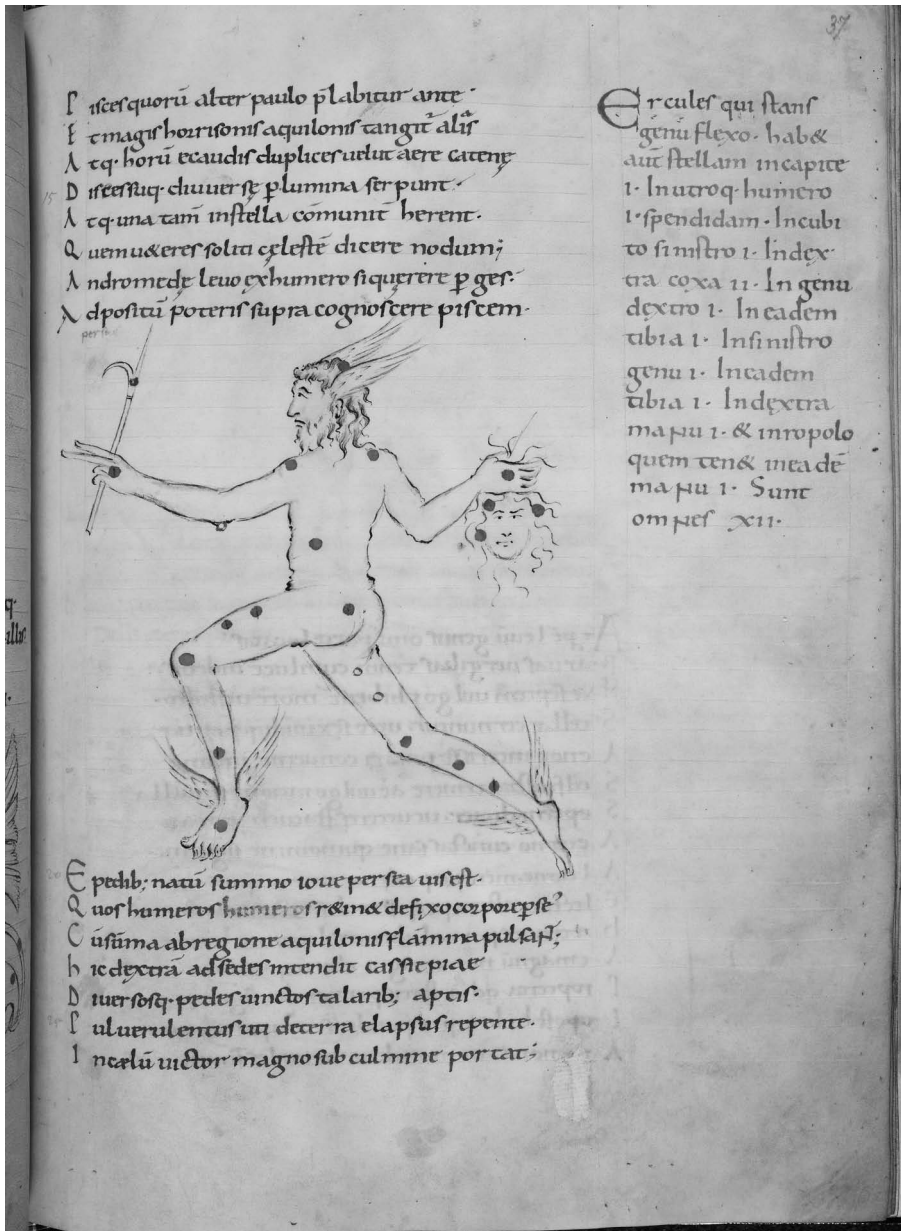 37
Piscesquorū alter paulo p̄labitur ante·
Et magis horrisonis aquilonis tangit᷑ alis
Atq· horū ecaudis duplices uelut aere catenę
Discessuq· diu uersę ꝑ lumina serpunt·
15
Atq· una tam̄ instella cōmunit̄ herent·
Quem u&eres soliti cęlestē dicere nodum;
Andromedę leuo ęxhumero siquerere ꝑges·
Adpositū poteris supra cognoscere piscem·
perseus
20
E pedib; natū summo ioue persea uisest·
Quos humeros humeros r&in& defixocorporeꝑseꝰ
Cūsūma abregione aquilonisflāmina pulsaɴ̄;
hic dęxtrā adsedes intendit cassiepiae
Diuersosq· pedes uinctos talarib; aptis·
25
Puluerulentus uti deterra elapsus repente·
Incęlū uictor magno sub culmine portat;
Ercules qui stans
genu flexo· hab&
aut̄ stellam incapite
1· Inutroq· humero
1· spendidam· Incubi
to sinistro 1· Index
tra coxa 11· In genu
dęxtro 1· Ineadem
tibia 1· Insinistro
genu 1· Ineadem
tibia 1· Indęxtra
maɴu 1· & inropolo
quem ten& ineadē
maɴu 1· Sunt
omɴes xii·